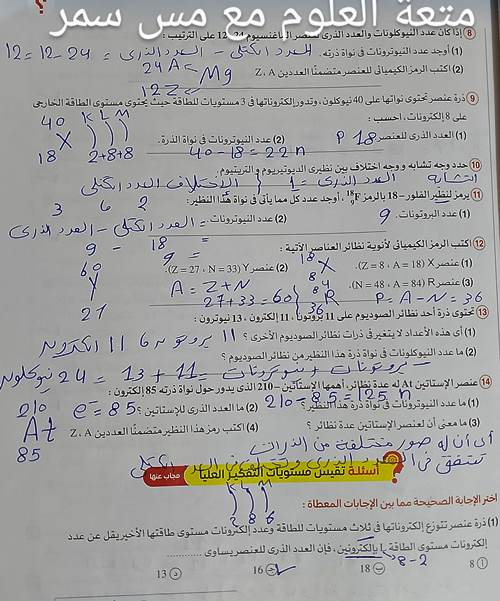 متعة العلوم مع مس سمر
8 إذا كان عدد النيوكلونات والعدد الذرى لعنصر الماغنسيوم 24، 12 على الترتيب :
(1) أوجد عدد النيوترونات فى نواة ذرته. العدد الكتلى - العدد الذرى = 24 - 12 = 12
(2) اكتب الرمز الكيميائى للعنصر متضمنًا العددين Z ، A
24 A Mg
12 Z
9 ذرة عنصر تحتوى نواتها على 40 نيوكلون، وتدور إلكتروناتها فى 3 مستويات للطاقة حيث يحتوى مستوى الطاقة الخارجى
على 8 إلكترونات، احسب :
(1) العدد الذرى للعنصر. 18 P
(2) عدد النيوترونات فى نواة الذرة.
40 - 18 = 22 n
40 X 18
K L M
2+8+8
10 حدد وجه تشابه و وجه اختلاف بين نظيرى الديوتيريوم و التريتيوم.
التشابه العدد الذرى = 1 الاختلاف العدد الكتلى
11 يرمز لنظير الفلور-18 بالرمز ¹⁸₉F ، أوجد عدد كل مما يأتى فى نواة هذا النظير:
(1) عدد البروتونات. 9
(2) عدد النيوترونات. = العدد الكتلى - العدد الذرى
= 18 - 9
12 اكتب الرمز الكيميائى لأنوية نظائر العناصر الآتية :
(1) عنصر X (Z = 8 ، A = 18).
18 X 8
(2) عنصر Y (Z = 27 ، N = 33).
A = Z + N
27 + 33 = 60
60 Y 27
(3) عنصر R (N = 48 ، A = 84).
84 R 36
P = A - N = 36
13 تحتوى ذرة أحد نظائر الصوديوم على 11 بروتون، 11 إلكترون، 13 نيوترون :
(1) أى هذه الأعداد لا يتغير فى ذرات نظائر الصوديوم الأخرى ؟ 11 بروتون 11 الكترون
(2) ما عدد النيوكلونات فى نواة ذرة هذا النظير من نظائر الصوديوم ؟
بروتونات + نيوترونات = 11 + 13 = 24 نيوكلون
14 عنصر الإستاتين At له عدة نظائر، أهمها الإستاتين-210 الذى يدور حول نواة ذرته 85 إلكترون :
(1) ما عدد النيوترونات فى نواة ذرة هذا النظير؟ 210 - 85 = 125 n
(2) ما العدد الذرى للإستاتين ؟ e⁻ = 85
(3) ما معنى أن لعنصر الإستاتين عدة نظائر ؟
(4) اكتب رمز هذا النظير متضمنًا العددين Z ، A
210 At 85
أى أن له صور مختلفة من الذرات
تتفق فى العدد الذرى وتختلف فى العدد الكتلى
أسئلة تقيس مستويات التفكير العليا
مجاب عنها
اختر الإجابة الصحيحة مما بين الإجابات المعطاة :
K L M
2 8 6
(1) ذرة عنصر تتوزع إلكتروناتها فى ثلاث مستويات للطاقة وعدد إلكترونات مستوى طاقتها الأخير يقل عن عدد
إلكترونات مستوى الطاقة L بإلكترونين، فإن العدد الذرى للعنصر يساوى
8 - 2
أ 8
ب 18
ج 16
د 13